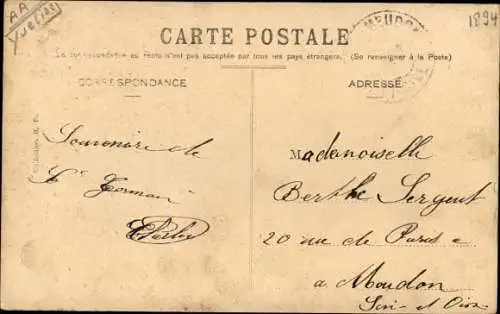 AA
Yvelines
1894
CARTE POSTALE
La correspondance au recto n'est pas acceptée par tous les pays étrangers. (Se renseigner à la Poste)
CORRESPONDANCE
ADRESSE
Souvenire de
St Germain
Mademoiselle
Berthe Sergent
20 rue de Paris
a Moudon
Sein et Oise